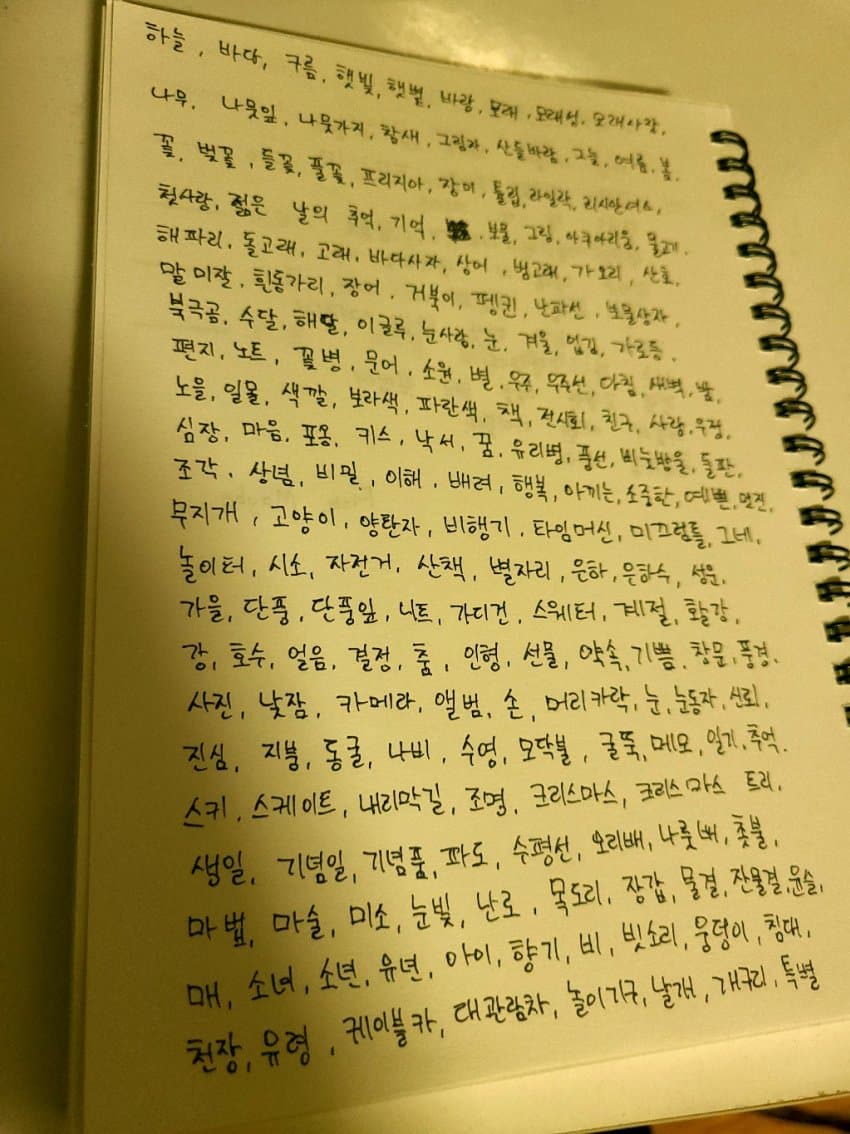 하늘, 바다, 구름, 햇빛, 햇볕, 바람, 모래, 모래성, 모래사장,
나무, 나뭇잎, 나뭇가지, 참새, 그림자, 산들바람, 그늘, 여름, 봄,
꽃, 벚꽃, 들꽃, 풀꽃, 프리지아, 장미, 튤립, 라일락, 리시안셔스,
첫사랑, 젊은 날의 추억, 기억, 보물, 그림, 아쿠아리움, 물고기.
해파리, 돌고래, 고래, 바다사자, 상어, 범고래, 가오리, 산호,
말미잘, 흰동가리, 장어, 거북이, 펭귄, 난파선, 보물상자,
북극곰, 수달, 해달, 이글루, 눈사람, 눈, 겨울, 입김, 가로등.
편지, 노트, 꽃병, 문어, 소원, 별, 우주, 우주선, 다짐, 새벽, 밤,
노을, 일몰, 색깔, 보라색, 파란색, 책, 전시회, 친구, 사랑, 우정,
심장, 마음, 포옹, 키스, 낙서, 꿈, 유리병, 풍선, 비눗방울, 돌판,
조각, 상념, 비밀, 이해, 배려, 행복, 아끼는, 소중한, 예쁜, 멋진,
무지개, 고양이, 양탄자, 비행기, 타임머신, 미끄럼틀, 그네,
놀이터, 시소, 자전거, 산책, 별자리, 은하, 은하수, 성운,
가을, 단풍, 단풍잎, 니트, 가디건, 스웨터, 계절, 활강,
강, 호수, 얼음, 결정, 춤, 인형, 선물, 약속, 기쁨, 창문, 풍경.
사진, 낮잠, 카메라, 앨범, 손, 머리카락, 눈, 눈동자, 신뢰,
진심, 지붕, 동굴, 나비, 수영, 모닥불, 굴뚝, 메모, 일기, 추억.
스키, 스케이트, 내리막길, 조명, 크리스마스, 크리스마스 트리,
생일, 기념일, 기념품, 파도, 수평선, 오리배, 나룻배, 촛불,
마법, 마술, 미소, 눈빛, 난로, 목도리, 장갑, 물결, 잔물결, 윤슬,
매, 소녀, 소년, 유년, 아이, 향기, 비, 빗소리, 웅덩이, 침대,
천장, 유령, 케이블카, 대관람차, 놀이기구, 날개, 개구리, 특별